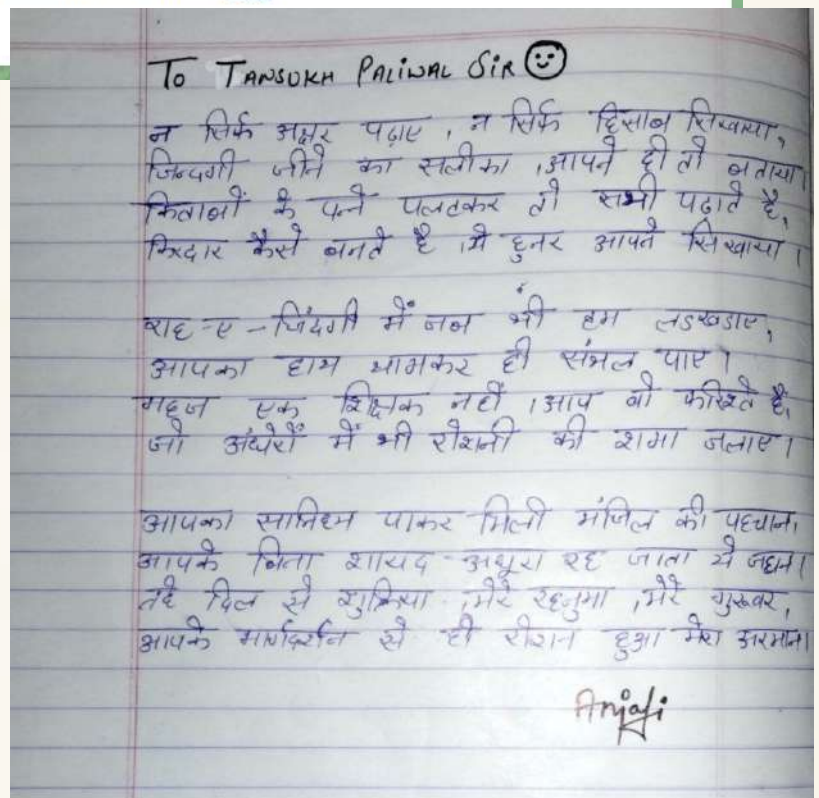 To TANSUKH PALIWAL SIR
न सिर्फ अक्षर पढ़ाए , न सिर्फ हिसाब सिखाया,
जिन्दगी जीने का सलीका ,आपने ही तो बताया।
किताबों के पन्ने पलटकर तो सभी पढ़ाते है,
किरदार कैसे बनते है ,ये हुनर आपने सिखाया।
राह-ए-जिंदगी में जब भी हम लडखडाए,
आपका हाथ थामकर ही संभल पाए।
महज एक शिक्षक नहीं ,आप वो फरिश्ते है,
जो अंधेरों में भी रोशनी की शमा जलाए।
आपका सानिध्य पाकर मिली मंजिल की पहचान।
आपके बिना शायद अधूरा रह जाता ये जहान।
तहे दिल से शुक्रिया ,मेरे रहनुमा ,मेरे गुरूवर,
आपके मार्गदर्शन से ही रोशन हुआ मेरा अरमान।
Anjali